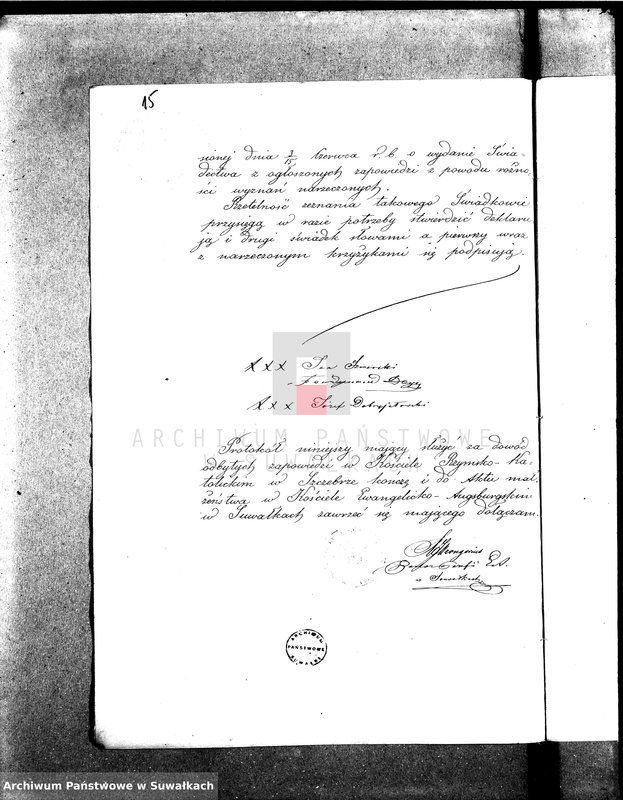 15
sionej dnia 3/15 Czerwca r. b. o wydanie Świa-
dectwa z ogłoszonych zapowiedzi z powodu różno-
ści wyznań narzeczonych.
Rzetelność zeznania takowego Świadkowie
przysięgą w razie potrzeby stwierdzić deklaru
ją i Drugi świadek słowami a pierwszy wraz
z narzeczonym krzyżykami się podpisują.
X X X Jan
X X X Józef
ARCHIWUM PAŃSTWOWE
W SUWAŁKACH
Protokół niniejszy mający służyć za dowód
odbytych zapowiedzi w Kościele Rzymsko-Ka-
tolickim w Szczebrze kończę i do Aktu mał
żeństwa w Kościele Ewangelicko-Augsburgskim
w Suwałkach zawrzeć się mającego dołączam.
Pastor Parafii E. A.
w Suwałkach
ARCHIWUM
PAŃSTWOWE
SUWAŁKI
Archiwum Państwowe w Suwałkach